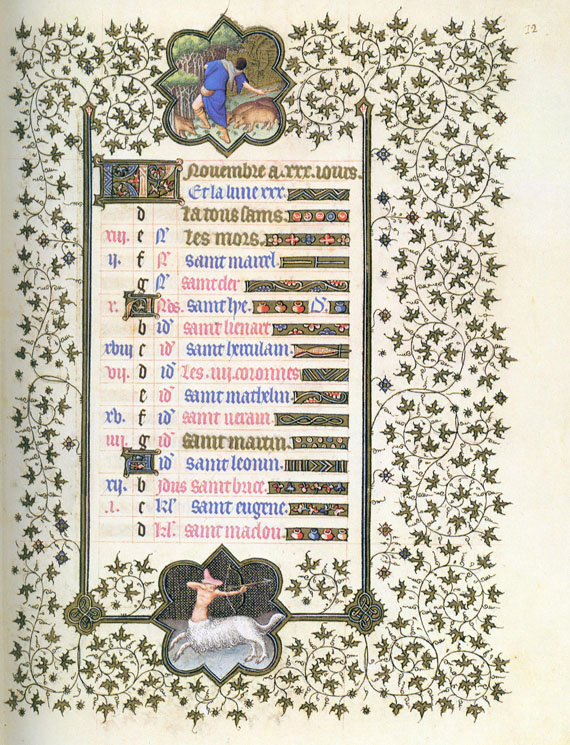 12
Novembre a .xxx. jours.
Et la lune xxx.
d La tous sains.
xiii. e N' Les mors.
ii. f N' saint marcel.
g N' saint cler.
x. A Nos. saint lye. D.
b id' saint lienart
xviii c id' saint herculain.
vii. d id' Les .iiii. coronnes
e id' saint mathelin.
xv. f id' saint verain.
iiii. g id' saint martin.
A id' saint leonin.
xii. b Idus saint brice.
i. c kl' saint eugene.
d kl' saint maclou.